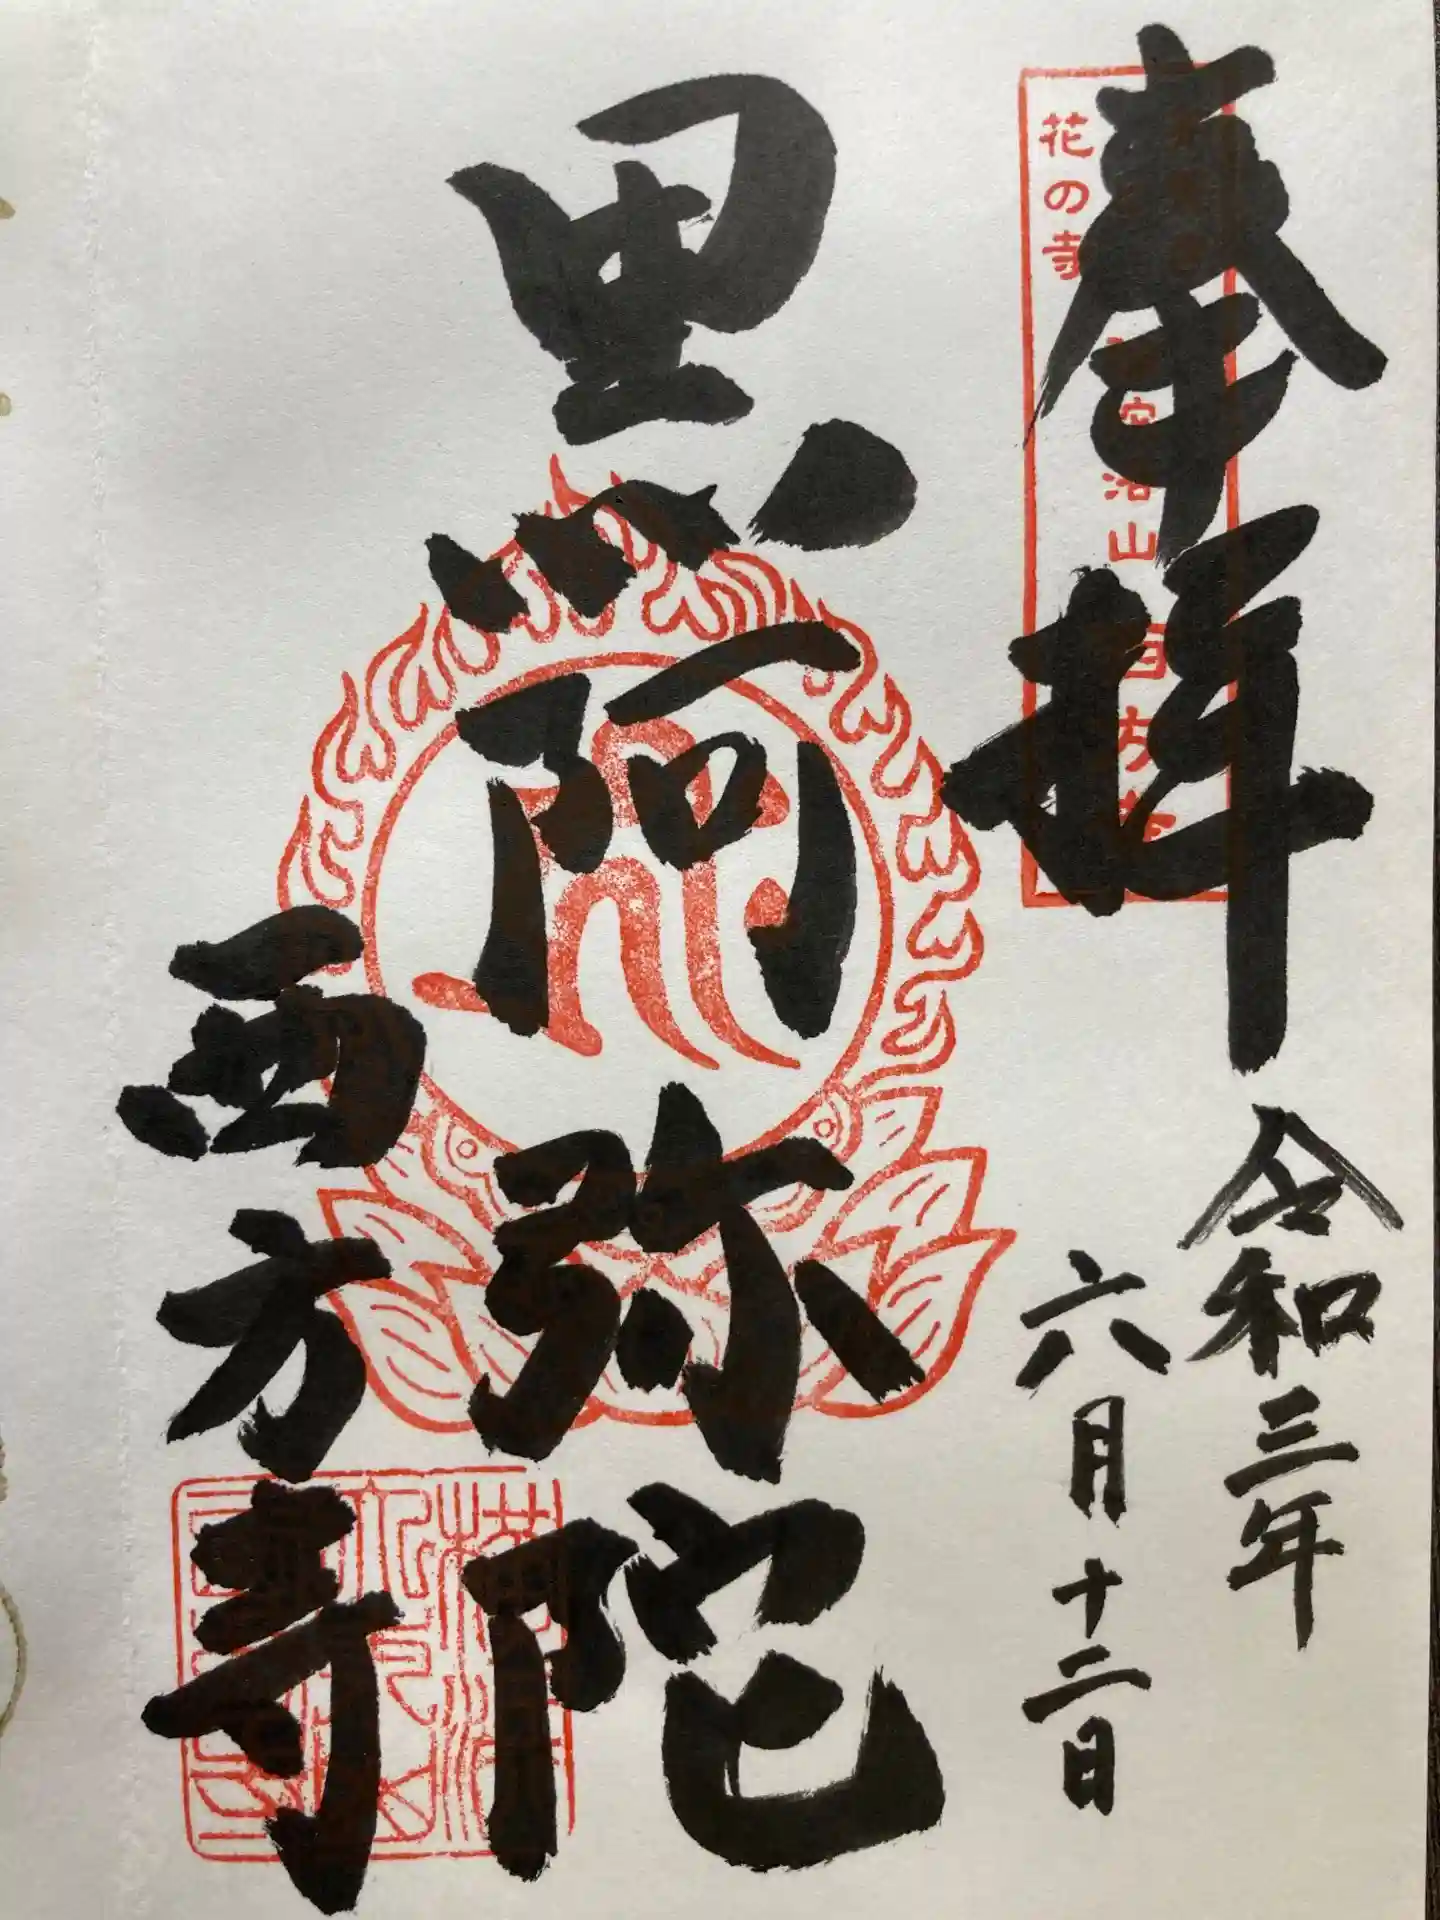 奉拝
花の寺
洛山
西方寺
令和三年
六月十二日
黒阿弥陀
西方寺